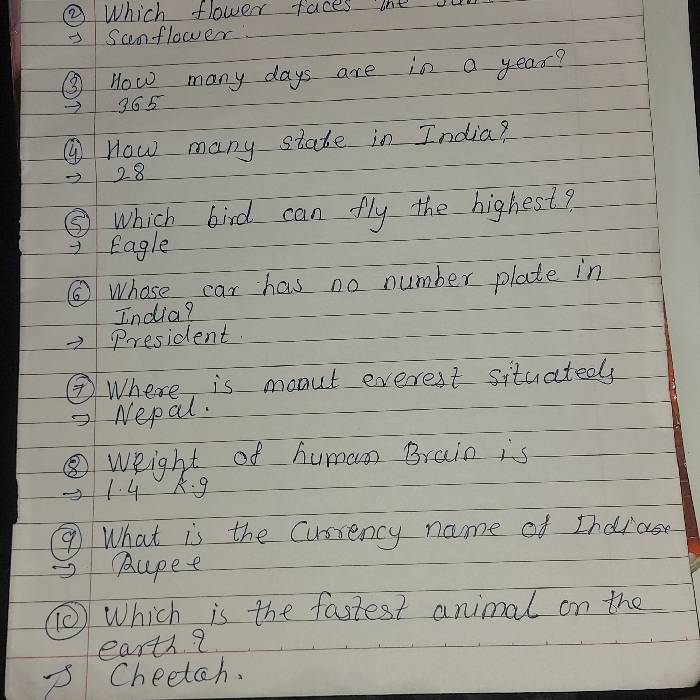 ② Which flower faces the sun
→ Sunflower.
③ How many days are in a year?
→ 365
④ How many state in India?
→ 28
⑤ Which bird can fly the highest?
→ Eagle
⑥ Whose car has no number plate in
India?
→ President.
⑦ Where is mount everest situated
→ Nepal.
⑧ Weight of human Brain is
→ 1.4 K.g
⑨ What is the Currency name of Indian
→ Rupee
⑩ Which is the fastest animal on the
earth?
→ Cheetah.